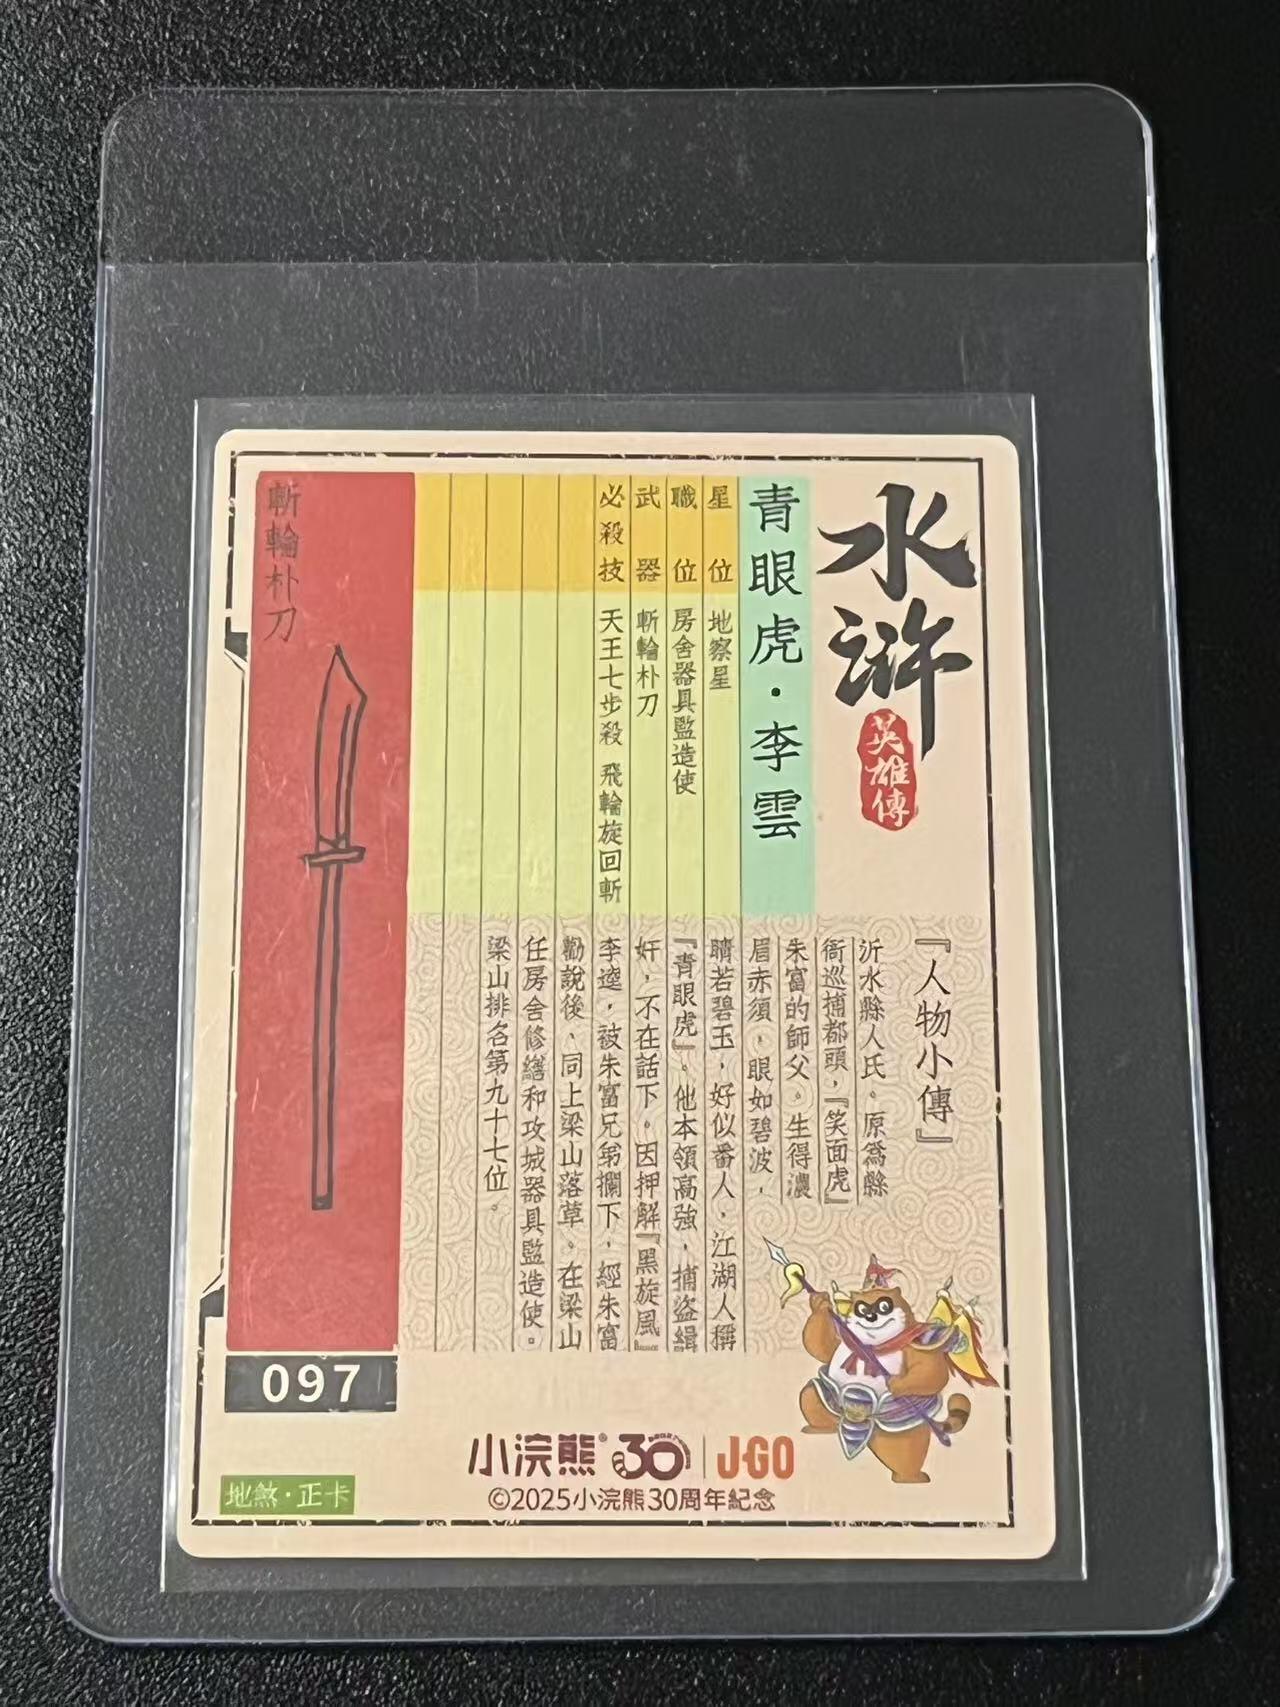 水滸
英雄傳
青眼虎·李雲
星位 地察星
職位 房舍器具監造使
武器 斬輪朴刀
必殺技 天王七步殺 飛輪旋回斬
斬輪朴刀
『人物小傳』
沂水縣人氏。原為縣
衙巡捕都頭，『笑面虎』
朱富的師父。生得濃
眉赤須，眼如碧波，
睛若碧玉，好似番人，江湖人稱
『青眼虎』。他本領高強，捕盜緝
奸，不在話下。因押解『黑旋風』
李逵，被朱富兄弟攔下，經朱富
勸說後，同上梁山落草。在梁山
任房舍修繕和攻城器具監造使。
梁山排名第九十七位。
097
小浣熊® 30 J·GO
©2025小浣熊30周年紀念
地煞·正卡